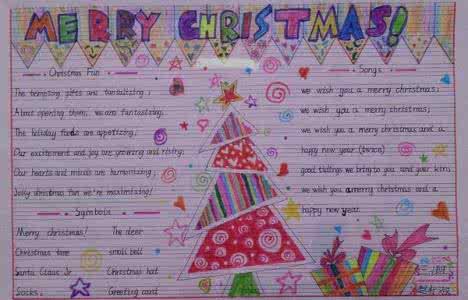 MERRY CHRISTMAS!
Christmas Fun
The tempting gifts are tantalizing;
About opening them, we are fantasizing;
The holiday foods are appetizing;
Our excitement and joy are growing and rising;
Our hearts and minds are harmonizing;
Jolly christmas fun we're maximizing!
Symbols
Merry christmas! The deer
Christmas tree small bell
Santa Claus Jr Christmas hat
Socks. Greeting card
Songs
we wish you a merry christmas;
we wish you a merry christmas;
we wish you a merry christmas and a
happy new year (twice)
good tidings we bring to you and your kin;
we wish you a merry christmas and a
happy new year.